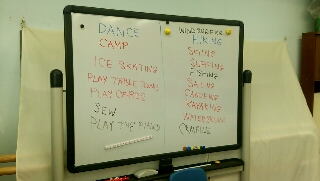 DANCE
CAMP
ICE SKATING
PLAY TABLE TENNIS
PLAY CARDS
SEW
PLAY THE PIANO
WINDSURFING
HIKING
SKIING
SURFING
FISHING
SAILING
CANOEING
KAYAKING